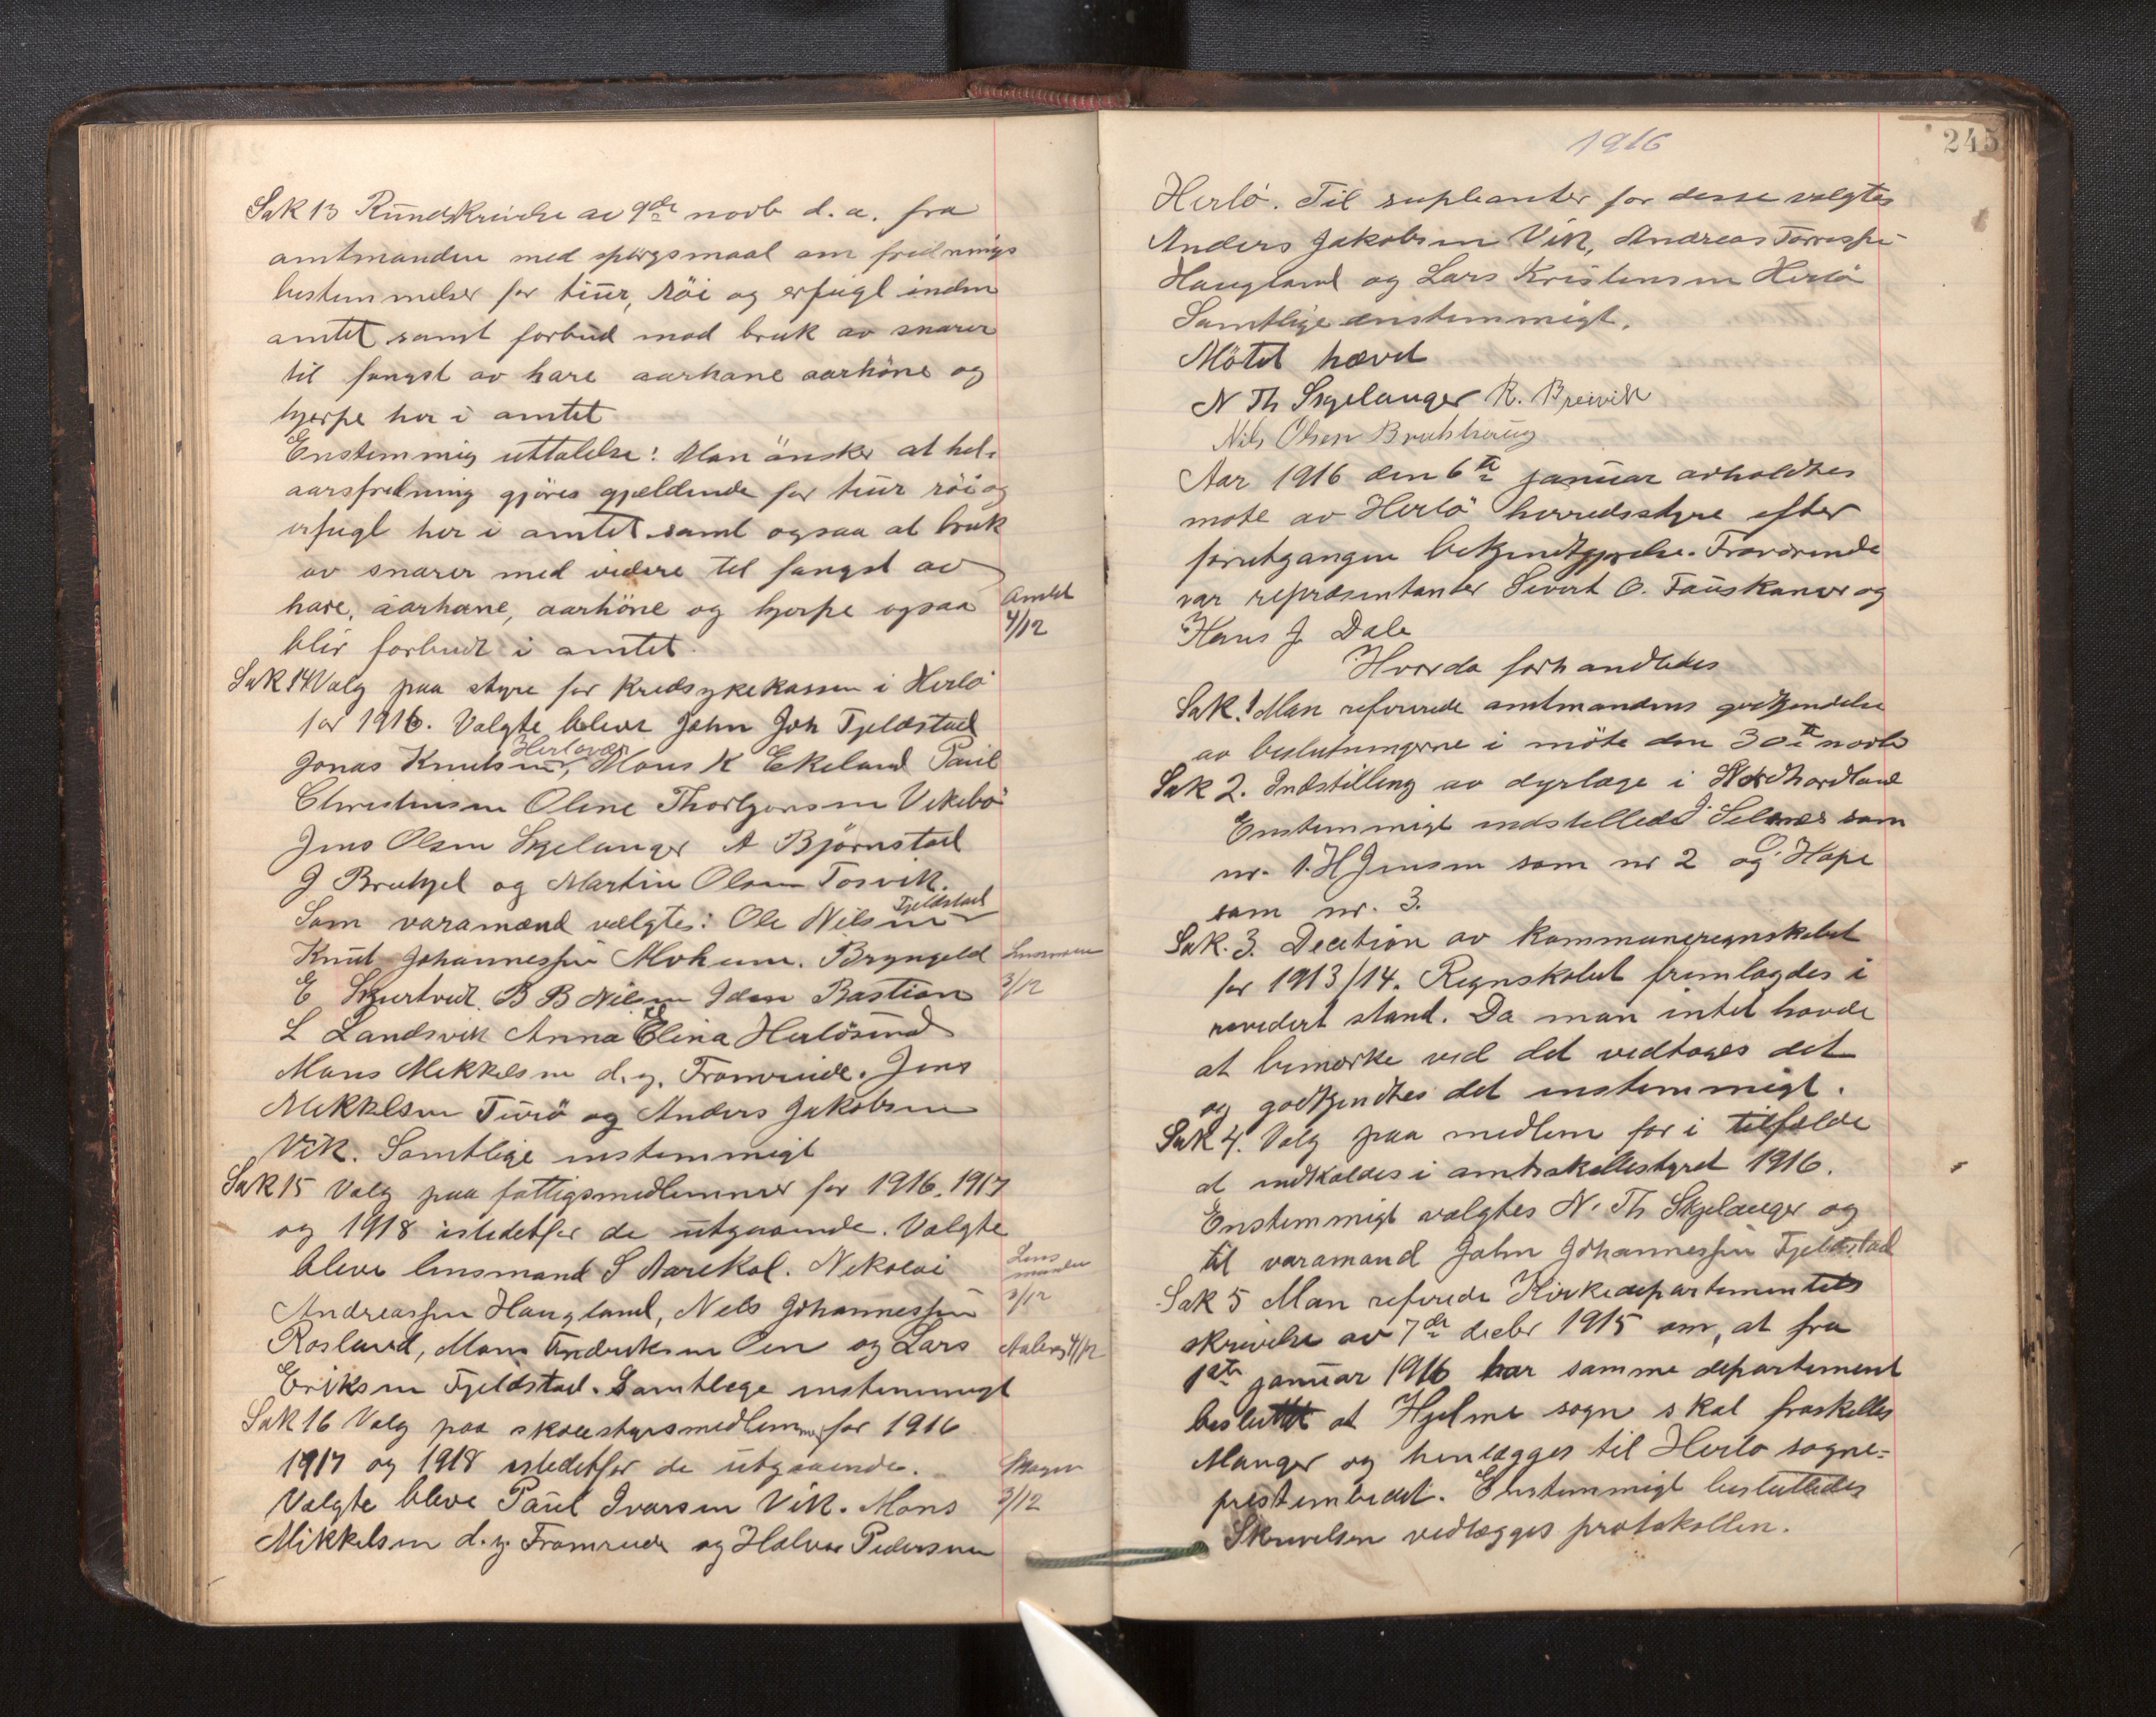 Sak 13 Rundskrivelse av 9de novb d. a. fra
amtmanden med spørgsmaal om frednings
bestemmelser for tiur, röi og ærfugl inden
amtet samt forbud mod bruk av snarer
til fangst av hare aarhane aarhöne og
hjerpe her i amtet
Enstemmig uttalelse: Man önsker at hel-
aarsfredning gjöres gjældende for tiur röi og
ærfugl her i amtet samt ogsaa at bruk
av snarer med videre til fangst av
hare, aarhane, aarhöne og hjerpe ogsaa
blir forbudt i amtet.
Amtet
4/12
Sak 14 Valg paa styre for kredsykekassen i Herlö
for 1916. Valgte bleve John Joh Fjeldstad
Jonas Knutsen Herlövær, Mons K Ekeland Paul
Christensen Oline Thorbjornsen Vikebö
Jens Olsen Skjelanger A Björnstad
J Brukjel og Martin Olsen Tosvik.
Som varamænd valgtes: Ole Nilsen Fjeldstad
Knut Johannessen Moheim. Bryngeld
E Skurtveit B B Nilsen Idem Bastian
L Landsvik Anna Elina Herlösund
Mons Mikkelsen d. y. Framreide. Jens
Mikkelsen Turö og Anders Jakobsen
Vik. Samtlige enstemmigt
3/12
Sak 15 Valg paa fattigsmedlemmer for 1916. 1917
og 1918 istedetfor de utgaaende. Valgte
bleve lensmand S Aarekol. Nikolai
Andreassen Haugland, Nels Johannessen
Rosland, Mons Endreksen Oen og Lars
Eriksen Fjeldstad. Samtlege enstemmigt
Lens
manden
3/12
4/12
Sak 16 Valg paa skolestyrsmedlemmer for 1916
1917 og 1918 istedetfor de utgaaende.
Valgte bleve Paul Ivarsen Vik. Mons
Mikkelsen d. y. Framreide og Halvor Pedersen
3/12
1916
245
Herlö. Til supleanter for desse valgtes
Anders Jakobsen Vik, Andreas Torressen
Haugland og Lars Kristensen Herlö
Samtlige enstemmigt.
Mötet hævet
N Th Skjelanger R. Breivik
Nils Olsen Brathhaug
Aar 1916 den 6te januar avholdtes
möte av Herlö herredsstyre efter
forutgangen bekjendtgjørelse. Fraværende
var repræsentanter Sivert O. Fauskanger og
Hans J. Dale
Hvorda forhandledes
Sak 1 Man refererede amtmandens godkjendelse
av beslutningerne i möte den 30te novb
Sak 2. Indstilling av dyrlæge i Nordhordland
Enstemmigt indstilledes J. Selnæs som
nr. 1. H Jensen som nr 2 og O. Hope
som nr. 3.
Sak. 3. Decition av kommuneregnskabet
for 1913/14. Regnskabet fremlagdes i
revidert stand. Da man intet havde
at bemærke ved det vedtoges det
og godkjendtes det enstemmigt.
Sak 4. Valg paa medlem for i tilfælde
at indkaldes i amtsskolestyret 1916.
Enstemmigt valgtes N. Th Skjelanger og
til varamand John Johannessen Fjeldstad
Sak 5 Man referede Kirkedepartementets
skrivelse av 7de decbr 1915 om, at fra
1ste januar 1916 har samme departement
besluttet at Hjelme sogn skal fraskilles
Manger og henlægges til Herlo sogne-
prestembedet. Enstemmigt besluttedes
Skrivelsen vedlægges protokollen.